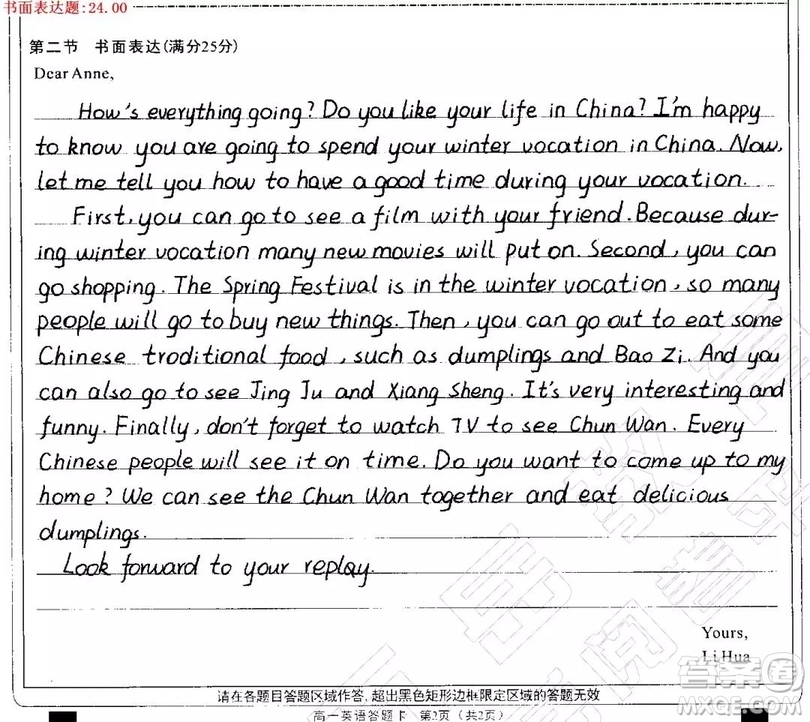 书面表达题:24.00
第二节 书面表达(满分25分)
Dear Anne,
How's everything going? Do you like your life in China? I'm happy
to know you are going to spend your winter vocation in China. Now,
let me tell you how to have a good time during your vocation.
First, you can go to see a film with your friend. Because dur-
ing winter vocation many new movies will put on. Second, you can
go shopping. The Spring Festival is in the winter vocation, so many
people will go to buy new things. Then, you can go out to eat some
Chinese troditional food, such as dumplings and Bao Zi. And you
can also go to see Jing Ju and Xiang Sheng. It's very interesting and
funny. Finally, don't forget to watch TV to see Chun Wan. Every
Chinese people will see it on time. Do you want to come up to my
home? We can see the Chun Wan together and eat delicious
dumplings.
Look forward to your replay.
Yours,
Li Hua
请在各题目答题区域作答,超出黑色矩形边框限定区域的答题无效
高一英语答题卡 第2页(共2页)